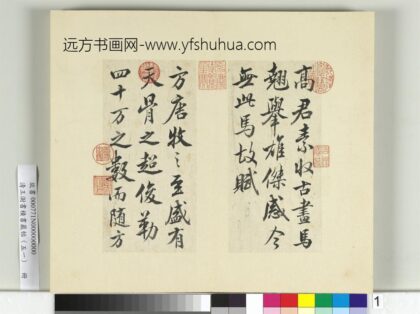 远方书画网-www.yfshuhua.com
高君素收古畫馬
翹舉雄傑感今
無此馬故賦
方唐牧之至盛有
天骨之超俊勒
四十万之數而随方
1